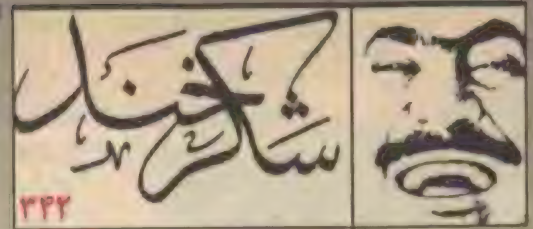 شکرخند
۳۴۲